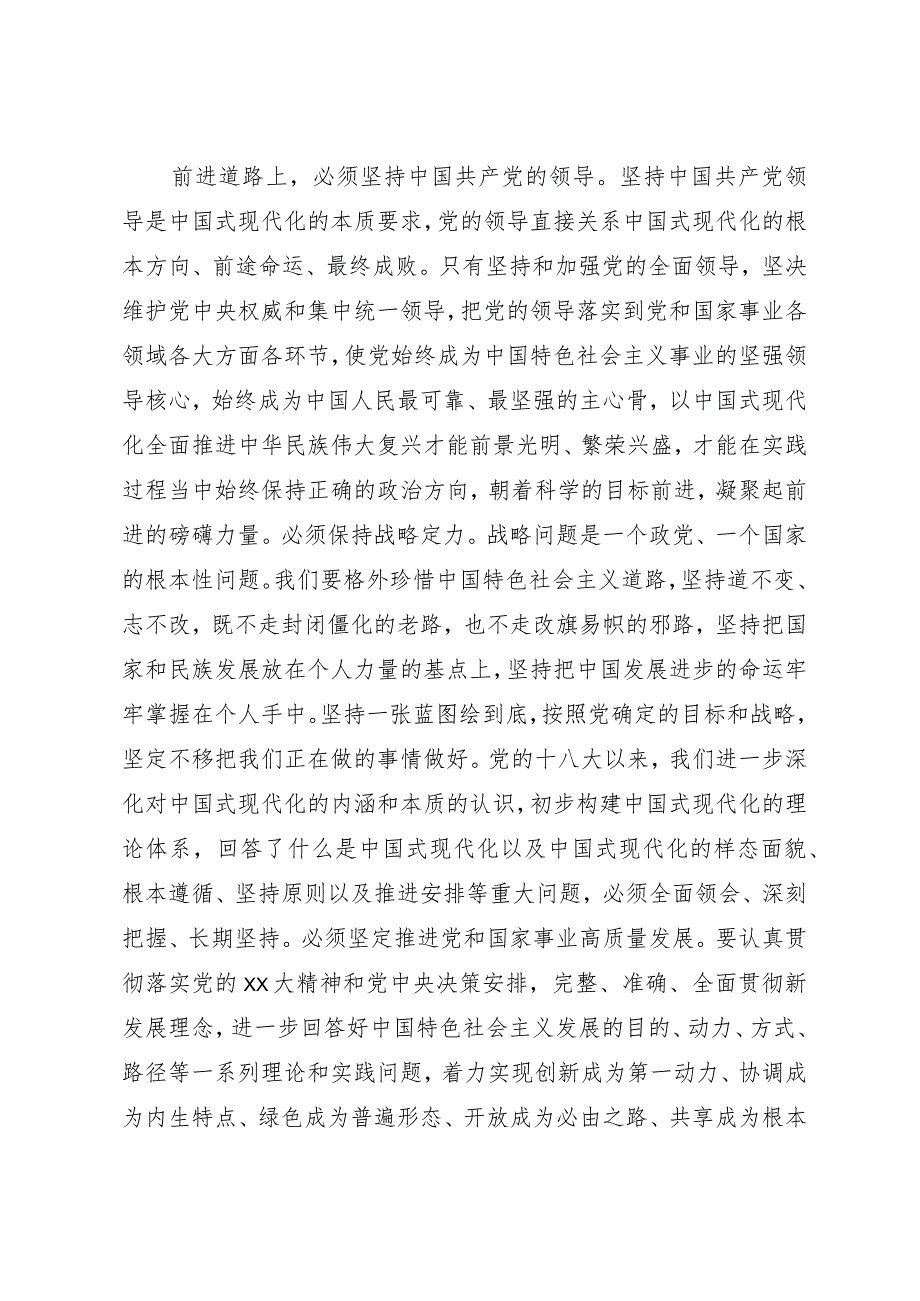 前进道路上，必须坚持中国共产党的领导。坚持中国共产党领
导是中国式现代化的本质要求，党的领导直接关系中国式现代化的根
本方向、前途命运、最终成败。只有坚持和加强党的全面领导，坚决
维护党中央权威和集中统一领导，把党的领导落实到党和国家事业各
领域各大方面各环节，使党始终成为中国特色社会主义事业的坚强领
导核心，始终成为中国人民最可靠、最坚强的主心骨，以中国式现代
化全面推进中华民族伟大复兴才能前景光明、繁荣兴盛，才能在实践
过程当中始终保持正确的政治方向，朝着科学的目标前进，凝聚起前
进的磅礴力量。必须保持战略定力。战略问题是一个政党、一个国家
的根本性问题。我们要格外珍惜中国特色社会主义道路，坚持道不变、
志不改，既不走封闭僵化的老路，也不走改旗易帜的邪路，坚持把国
家和民族发展放在个人力量的基点上，坚持把中国发展进步的命运牢
牢掌握在个人手中。坚持一张蓝图绘到底，按照党确定的目标和战略，
坚定不移把我们正在做的事情做好。党的十八大以来，我们进一步深
化对中国式现代化的内涵和本质的认识，初步构建中国式现代化的理
论体系，回答了什么是中国式现代化以及中国式现代化的样态面貌、
根本遵循、坚持原则以及推进安排等重大问题，必须全面领会、深刻
把握、长期坚持。必须坚定推进党和国家事业高质量发展。要认真贯
彻落实党的xx大精神和党中央决策安排，完整、准确、全面贯彻新
发展理念，进一步回答好中国特色社会主义发展的目的、动力、方式、
路径等一系列理论和实践问题，着力实现创新成为第一动力、协调成
为内生特点、绿色成为普遍形态、开放成为必由之路、共享成为根本